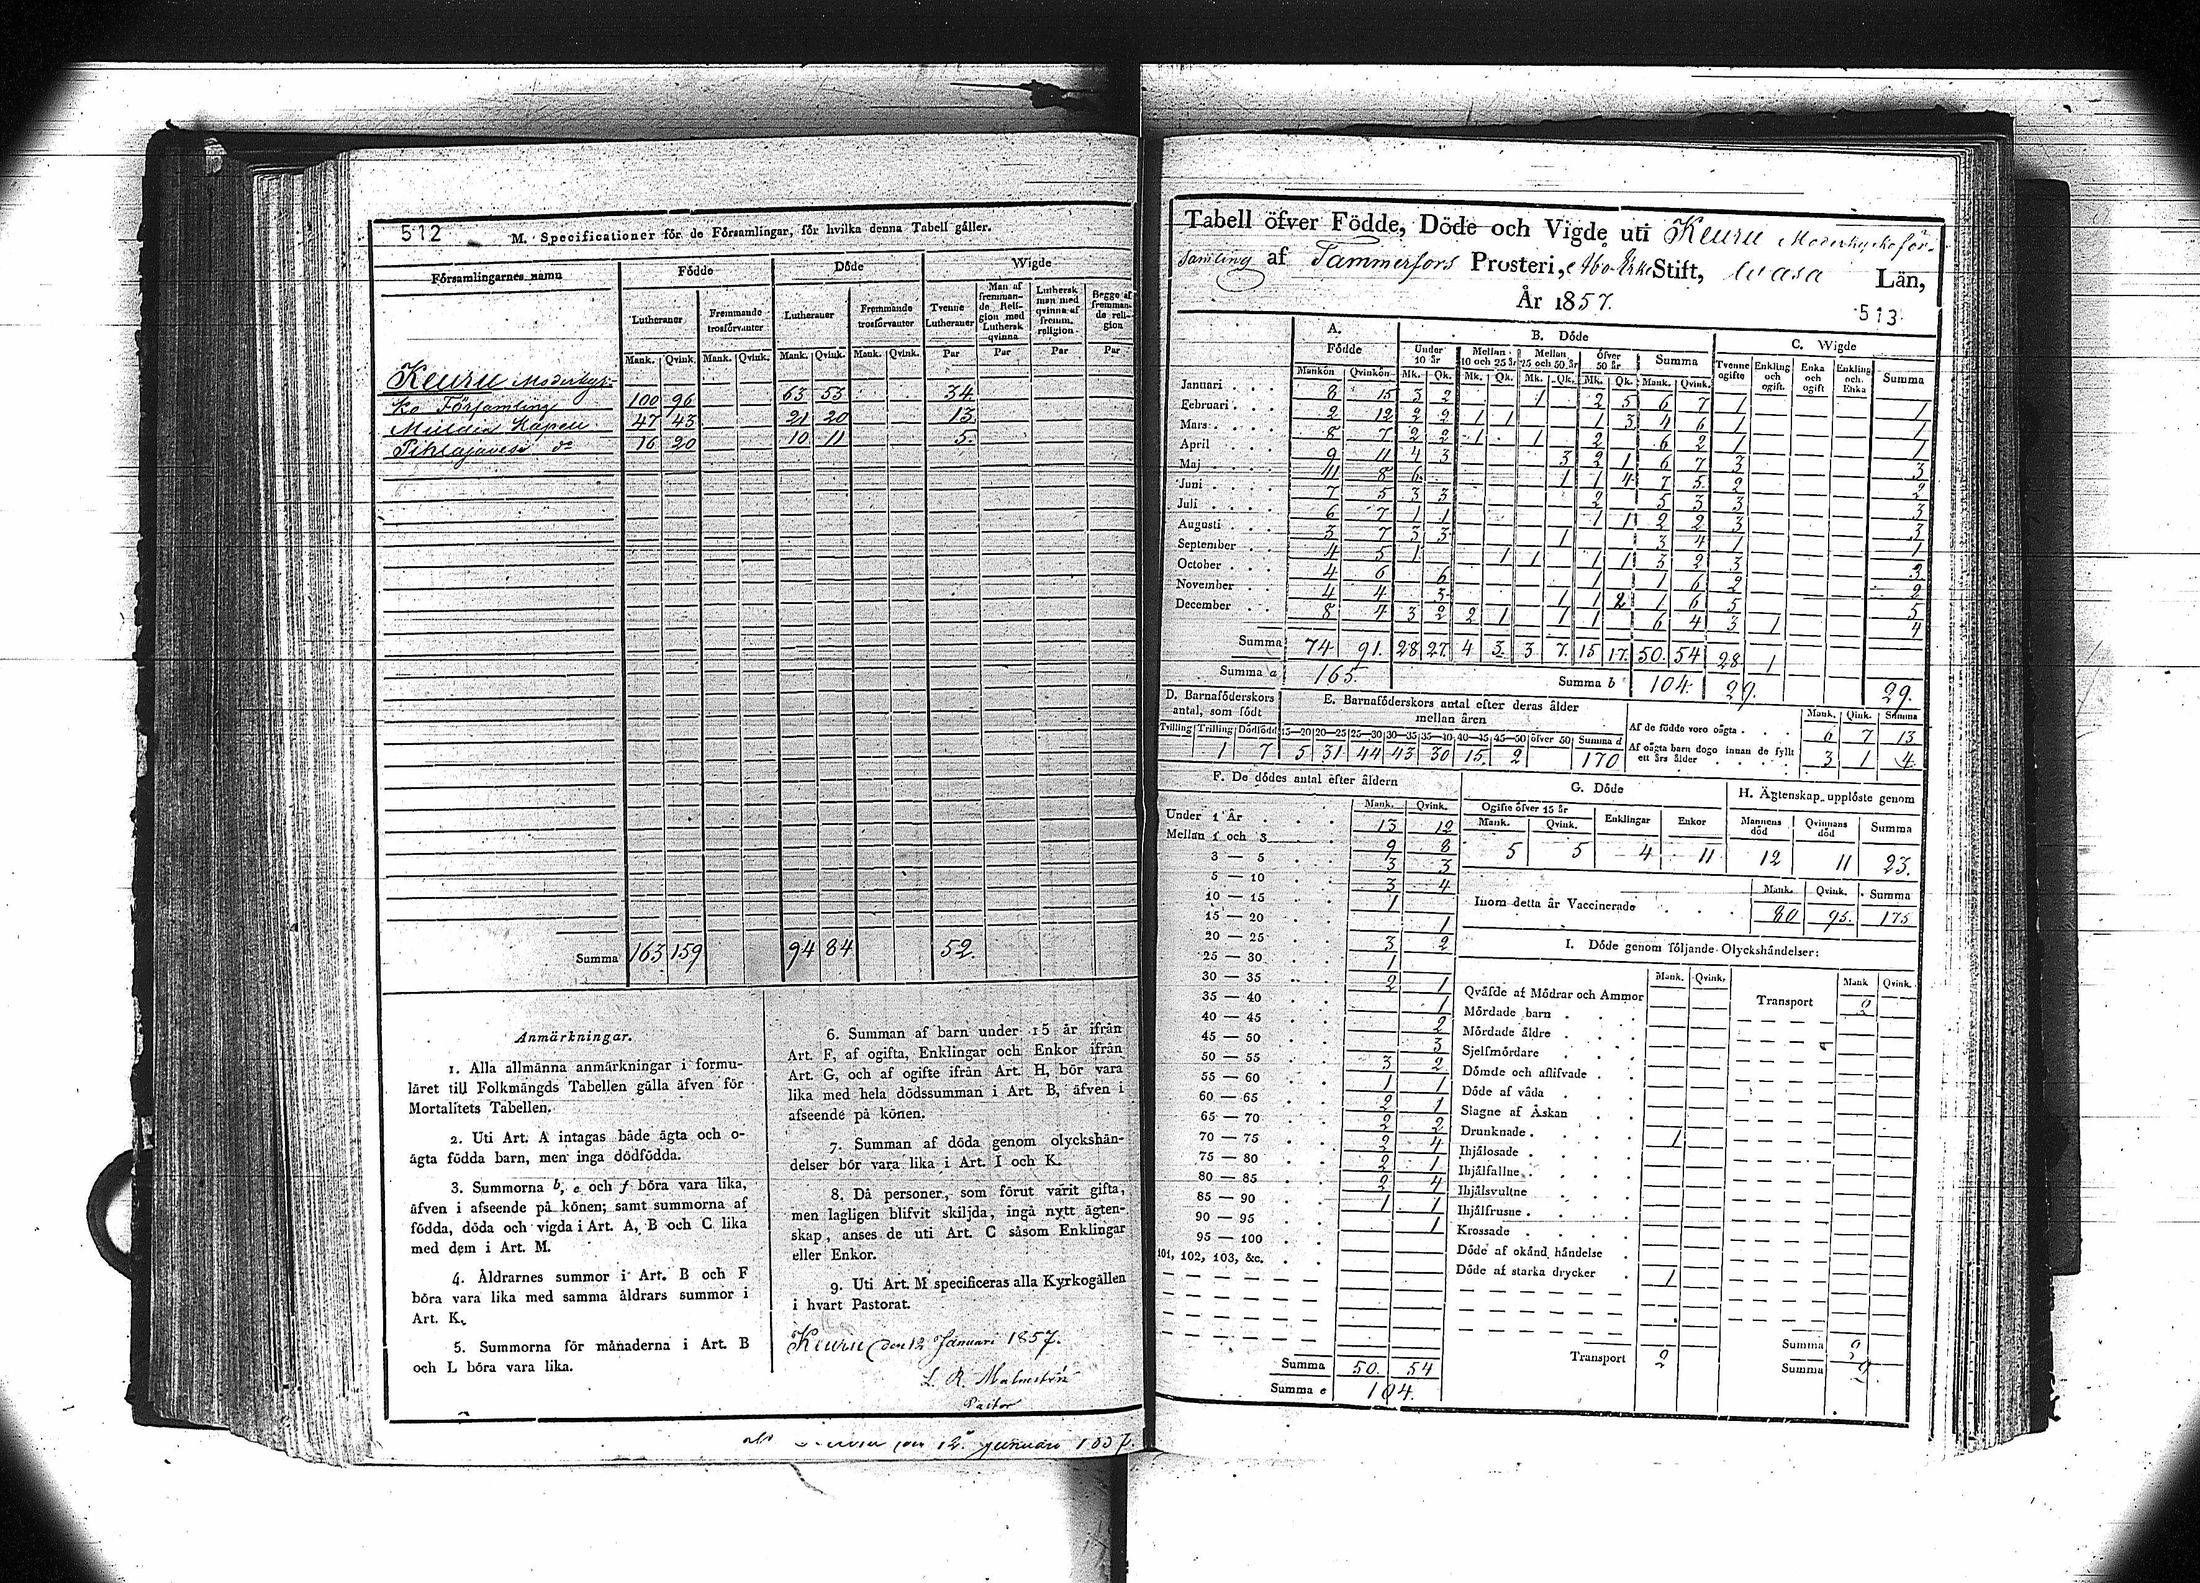 512
M. Specificationer för de Församlingar, för hvilka denna Tabell gäller.
Församlingarnes namn Födde Döde Wigde
Lutheraner Fremmande trosförvanter Lutheraner Fremmande trosförvanter Tvenne Lutheraner Man af fremmande Religion med Luthersk qvinna Luthersk man med qvinna af fremm. religion Begge af fremmande religion
Mank. Qvink. Mank. Qvink. Mank. Qvink. Mank. Qvink. Par Par Par Par
Keuru Moderkyr-
ko Församling 100 96 63 53 34
Multia Kapell 47 43 21 20 13
Pihlajavesi do 16 20 10 11 5
Summa 163 159 94 84 52
Anmärkningar.
1. Alla allmänna anmärkningar i formu-
läret till Folkmängds Tabellen gälla äfven för
Mortalitets Tabellen.
2. Uti Art. A intagas både ägta och o-
ägta födda barn, men inga dödfödda.
3. Summorna b, e och f böra vara lika,
äfven i afseende på könen; samt summorna af
födda, döda och vigda i Art. A, B och C lika
med dem i Art. M.
4. Åldrarnes summor i Art. B och F
böra vara lika med samma åldrars summor i
Art. K.
5. Summorna för månaderna i Art. B
och L böra vara lika.
6. Summan af barn under 15 år ifrån
Art. F, af ogifta, Enklingar och Enkor ifrån
Art. G, och af ogifte ifrån Art. H, bör vara
lika med hela dödssumman i Art. B, äfven i
afseende på könen.
7. Summan af döda genom olyckshän-
delser bör vara lika i Art. I och K.
8. Då personer, som förut varit gifta,
men lagligen blifvit skiljda, ingå nytt ägten-
skap, anses de uti Art. C såsom Enklingar
eller Enkor.
9. Uti Art. M specificeras alla Kyrkogällen
i hvart Pastorat.
Keuru den 12 Januari 1857.
L. R. Malmström
Pastor
Tabell öfver Födde, Döde och Vigde uti Keuru Moderkyrkoför-
samling af Tammerfors Prosteri, Åbo Erke Stift, Wasa Län,
År 1857.
513
A. Födde B. Döde C. Wigde
Under 10 år Mellan 10 och 25 år Mellan 25 och 50 år öfver 50 år Summa Tvenne ogifte Enkling och ogift. Enka och ogift Enkling och Enka Summa
Mankön Qvinkön Mk. Qk. Mk. Qk. Mk. Qk. Mk. Qk. Mank. Qvink.
Januari 8 15 3 2 1 2 5 6 7 1 1
Februari 2 12 2 2 1 1 1 3 4 6 1 1
Mars 8 7 2 2 1 1 2 6 2 1 1
April 9 11 4 3 3 2 1 6 7 3 3
Maj 11 8 6 1 1 4 7 5 2 2
Juni 7 5 3 3 2 5 3 3 3
Juli 6 7 1 1 1 1 2 2 3 3
Augusti 3 7 3 3 1 3 4 1 1
September 4 5 1 1 1 1 1 3 2 3 3
October 4 6 6 1 1 6 2 2
November 4 4 3 1 1 2 1 6 5 5
December 8 4 3 2 2 1 1 1 6 4 3 1 4
Summa 74 91 28 27 4 3 3 7 15 17 50 54 28 1
Summa a 165. Summa b 104. 29. 29.
D. Barnaföderskors antal, som födt
E. Barnaföderskors antal efter deras ålder mellan åren
Tvilling Trilling Dödfödd 15—20 20—25 25—30 30—35 35—40 40—45 45—50 öfver 50 Summa d
1 7 5 31 44 43 30 15 2 170
Mank. Qink. Summa
Af de födde voro oägta 6 7 13
Af oägta barn dogo innan de fyllt ett års ålder 3 1 4
F. De dödes antal efter åldern
Mank. Qvink.
Under 1 År 13 12
Mellan 1 och 3 9 8
3 — 5 3 3
5 — 10 3 4
10 — 15 1
15 — 20 1
20 — 25 3 2
25 — 30 1
30 — 35 2 1
35 — 40 1
40 — 45 2
45 — 50 3
50 — 55 3 2
55 — 60 1 1
60 — 65 2 1
65 — 70 2 2
70 — 75 2 4
75 — 80 2 1
80 — 85 2 4
85 — 90 1 1
90 — 95 1
95 — 100
101, 102, 103, &c.
Summa 50. 54
Summa e 104.
G. Döde
Ogifte öfver 15 år Enklingar Enkor
Mank. Qvink.
5 5 4 11
H. Ägtenskap upplöste genom
Mannens död Qvinnans död Summa
12 11 23.
Mank. Qvink. Summa
Inom detta år Vaccinerade 80 95. 175
I. Döde genom följande Olyckshändelser:
Mank. Qvink. Mank Qvink.
Qväfde af Mödrar och Ammor Transport 2
Mördade barn
Mördade äldre
Sjelfmördare
Dömde och aflifvade
Döde af våda
Slagne af Åskan
Drunknade 1
Ihjälosade
Ihjälfallne
Ihjälsvultne
Ihjälfrusne
Krossade
Döde af okänd händelse
Döde af starka drycker 1
Transport 2
Summa 2
Summa 2